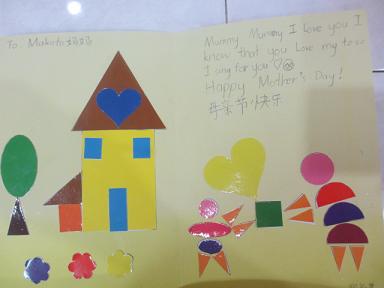 To. Makoto妈妈
Mummy Mummy I love you I
know that you love my to so
I sing for you
Happy Mother's Day!
母亲节快乐